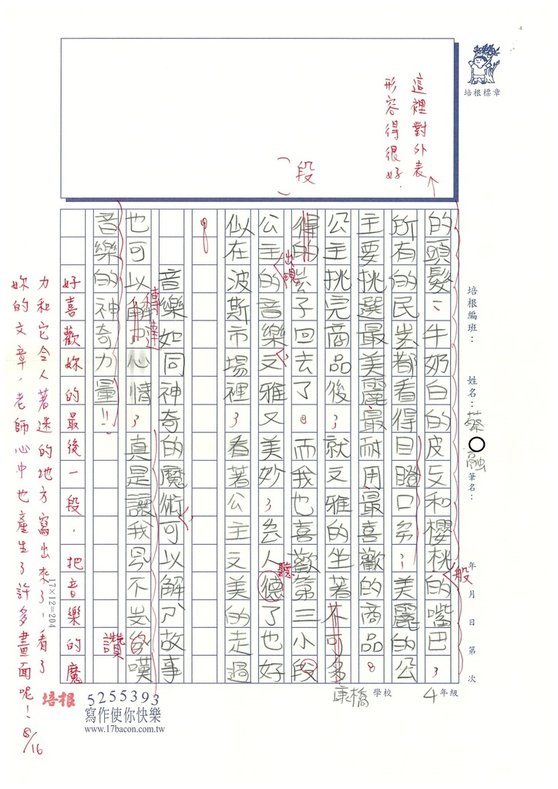 培根標章
這裡對外表
形容得很好.
段
培根編班：
姓名：蔡○融
筆名：
年 月 日 第 次
的頭髮、牛奶白的皮夫和櫻桃的嘴巴，
般
所有的民眾都看得目瞪口呆；美麗的公
主要挑選最美麗最耐用最喜歡的商品。
公主挑完商品後，就文雅的坐著
回去了。而我也喜歡第三小段
出現
公主的音樂文雅又美妙，
聽
了也好
似在波斯市場裡，看著公主文美的走過
。
音樂如同神奇的魔術可以解
故事
也可以
心情，真是讓我
不
嘆
傳達
讚
音樂的神奇力量!!
好喜歡妳的最後一段，把音樂的魔
力和它令人著迷的地方寫出來了，看了
妳的文章，老師心中也產生了許多畫面呢！
8/16
17×12=204
康橋 學校 4 年級
培根 5255393
寫作使你快樂
www.17bacon.com.tw